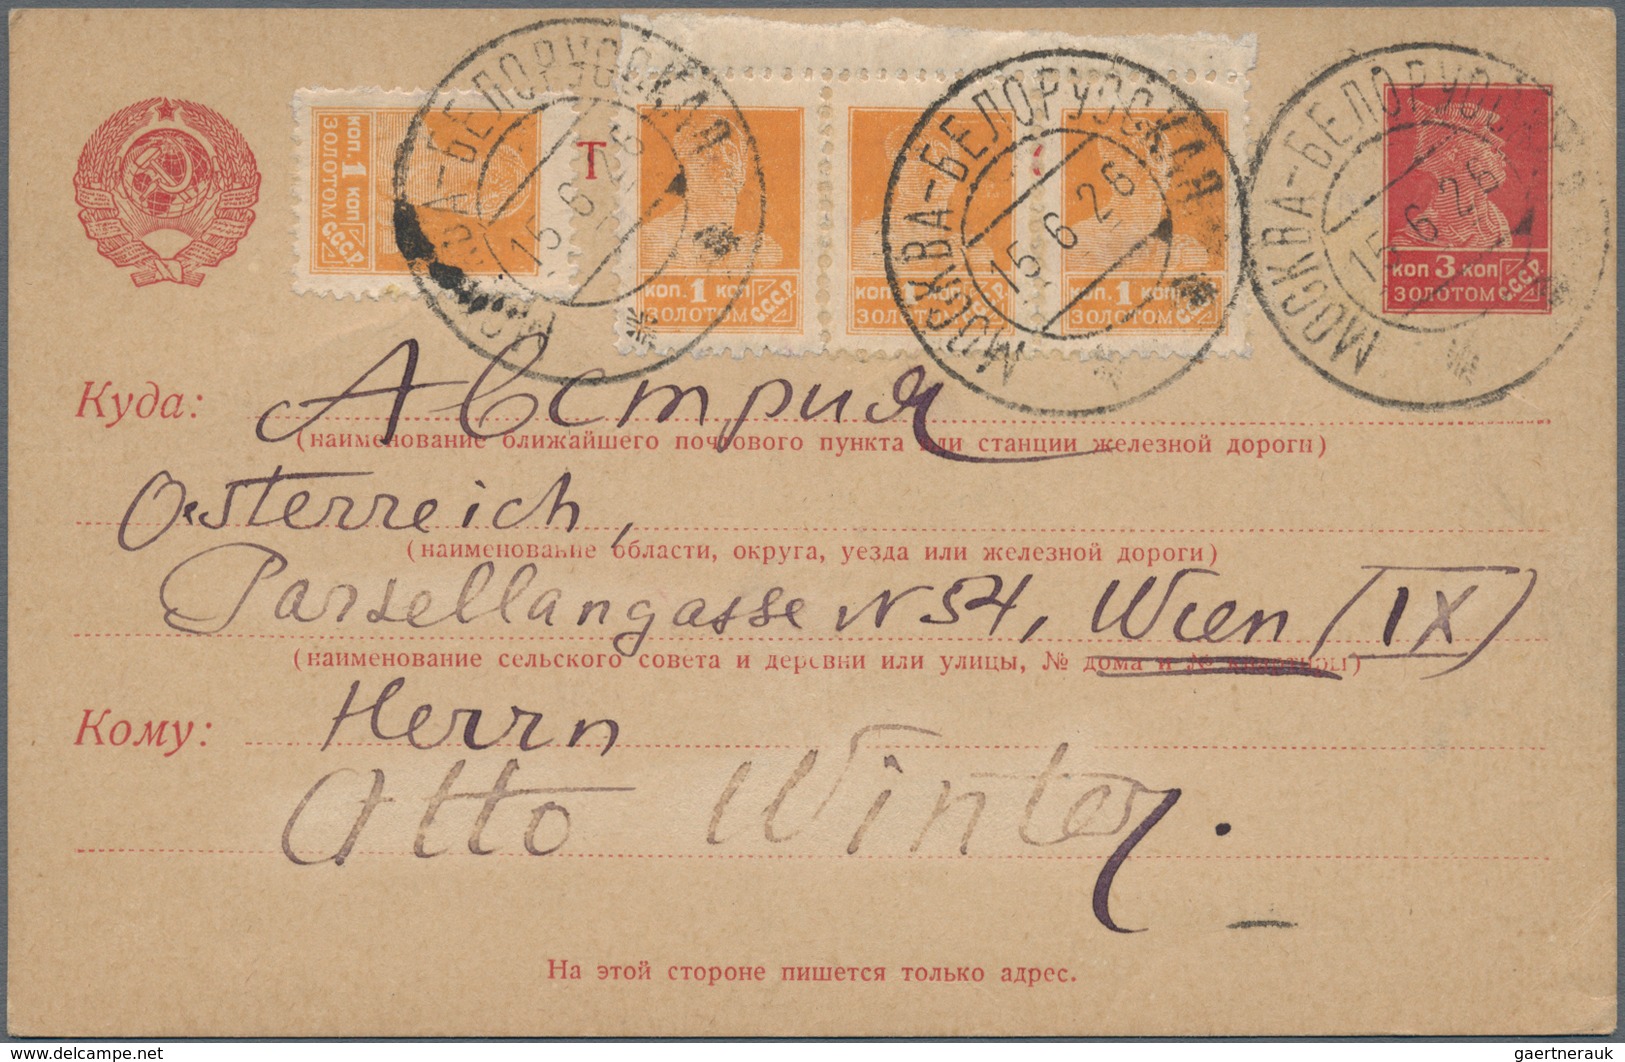 МОСКВА-БЕЛОРУССКАЯ
15 6 26
МОСКВА-БЕЛОРУССКАЯ
15 6 26
МОСКВА-БЕЛОРУССКАЯ
15 6 26
КОП. 1 КОП
ЗОЛОТОМ С.С.С.Р.
Т
КОП. 1 КОП
ЗОЛОТОМ С.С.С.Р.
КОП. 1 КОП
ЗОЛОТОМ С.С.С.Р.
КОП. 1 КОП
ЗОЛОТОМ С.С.С.Р.
КОП 3 КОП
ЗОЛОТОМ С.С.С.Р.
Куда: Австрия
(наименование ближайшего почтового пункта или станции железной дороги)
Oesterreich,
(наименование области, округа, уезда или железной дороги)
Parzellangasse N 54, Wien (IX)
(наименование сельского совета и деревни или улицы, № дома и № квартиры)
Кому: Herrn
Otto Winter.
На этой стороне пишется только адрес.
www.delcampe.net
gaertnerauk